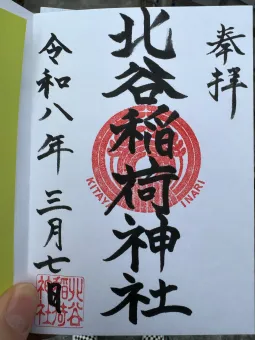 奉拝
北谷稲荷神社
令和八年三月七日
KITAYA INARI
北谷
稲荷
神社